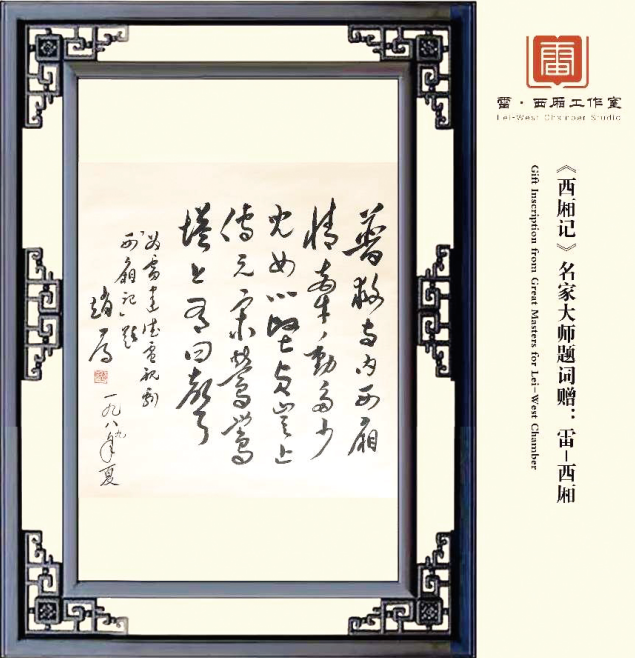 雷·西厢工作室
Lei-West Chamber Studio
《西厢记》名家大师题词赠：雷-西厢
Gift Inscription from Great Masters for Lei-West Chamber
普救寺内西厢
情牵动多少
儿女心坚贞岂止
传元宋莺莺
塔上有回声
为雷建德电视剧
西厢记题
赵寻
一九八九年夏